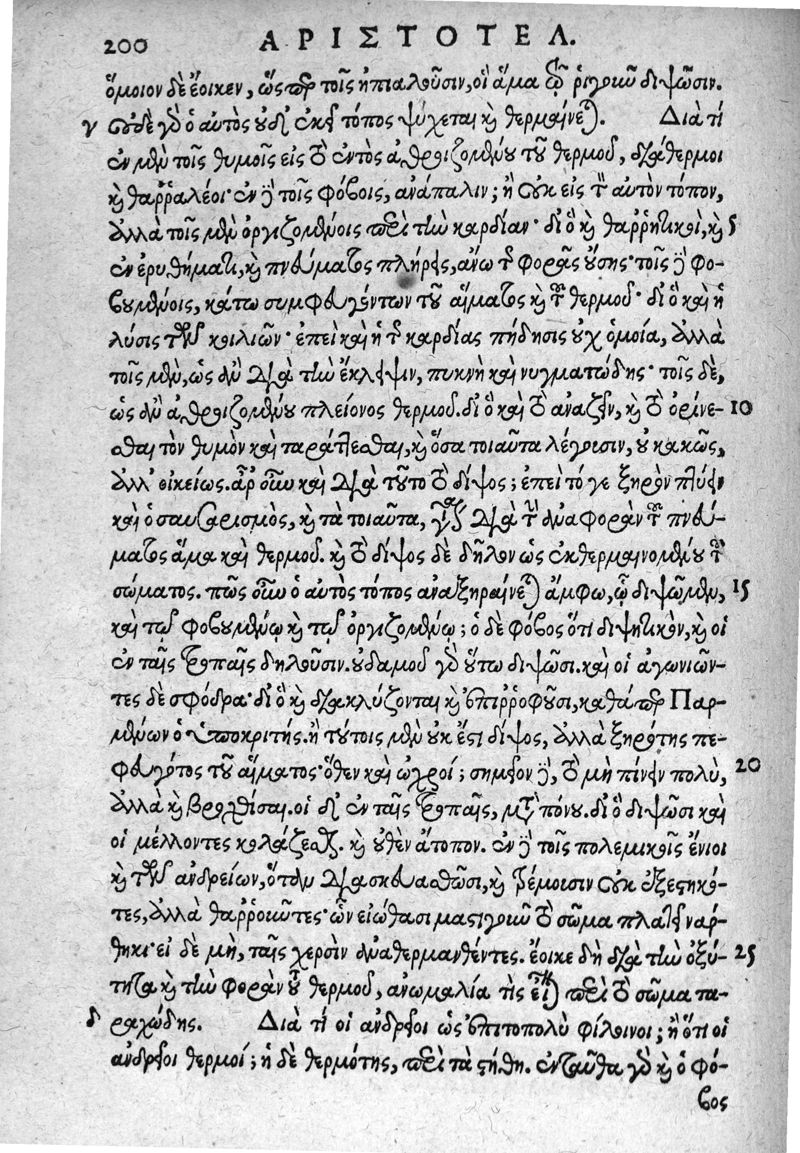 200 ΑΡΙΣΤΟΤΕΛ.
ὅμοιον δὲ ἔοικεν, ὥσπερ τοῖς ἠπιαλοῦσιν, οἳ ἅμα τῷ ῥιγοῦν διψῶσιν.
γ οὐδὲ γὸ ὁ αὐτὸς οὐδ' ἐκεῖ τόπος ψύχεται καὶ θερμαίνεται. Διὰ τί
ἐν μὲν τοῖς θυμοῖς εἰς τὸ ἐντὸς ἀθροιζομένου τοῦ θερμοῦ, διάθερμοι
καὶ θαῤῥαλέοι· ἐν δὲ τοῖς φόβοις, ἀνάπαλιν; ἢ οὐκ εἰς τὸν αὐτὸν τόπον,
ἀλλὰ τοῖς μὲν ὀργιζομένοις περὶ τὴν καρδίαν· διὸ καὶ θαῤῥητικοὶ, καὶ 5
ἐν ἐρυθήματι, καὶ πνεύματος πλήρεις, ἄνω τῆς φορᾶς οὔσης· τοῖς δὲ φο-
βουμένοις, κάτω συμφευγόντων τοῦ αἵματος καὶ τοῦ θερμοῦ· διὸ καὶ ἡ
λύσις τῶν κοιλιῶν· ἐπεὶ καὶ ἡ τῆς καρδίας πήδησις οὐχ ὁμοία, ἀλλὰ
τοῖς μὲν, ὡς ἂν διὰ τὴν ἔκλειψιν, πυκνὴ καὶ νυγματώδης· τοῖς δὲ,
ὡς ἂν ἀθροιζομένου πλείονος θερμοῦ. διὸ καὶ τὸ ἀναζεῖν, καὶ τὸ ὀρίνε- 10
σθαι τὸν θυμὸν καὶ ταράττεσθαι, καὶ ὅσα τοιαῦτα λέγουσιν, οὐ κακῶς,
ἀλλ' οἰκείως. ἆρ' οὖν καὶ διὰ τοῦτο τὸ δίψος; ἐπεὶ τό γε ξηρὸν πτύειν
καὶ ὁ σαυσαρισμὸς, καὶ τὰ τοιαῦτα, γίνεται διὰ τὴν ἀναφορὰν τοῦ πνεύ-
ματος ἅμα καὶ θερμοῦ. καὶ τὸ δίψος δὲ δῆλον ὡς ἐκθερμαινομένου τοῦ
σώματος. πῶς οὖν ὁ αὐτὸς τόπος ἀναξηραίνεται ἄμφω, ᾧ διψῶμεν, 15
καὶ τῷ φοβουμένῳ καὶ τῷ ὀργιζομένῳ; ὁ δὲ φόβος ὅτι διψητικὸν, καὶ οἱ
ἐν ταῖς τροπαῖς δηλοῦσιν. οὐδαμοῦ γὸ οὕτω διψῶσι. καὶ οἱ ἀγωνιῶν-
τες δὲ σφόδρα· διὸ καὶ διακλύζονται καὶ ἐπιῤῥοφοῦσι, καθάπερ Παρ-
μένων ὁ ὑποκριτής. ἢ τούτοις μὲν οὐκ ἔστι δίψος, ἀλλὰ ξηρότης πε-
φευγότος τοῦ αἵματος· ὅθεν καὶ ὠχροί; σημεῖον δὲ, τὸ μὴ πίνειν πολὺ, 20
ἀλλὰ καὶ βροχθίσαι. οἱ δ' ἐν ταῖς τροπαῖς, μετὰ πόνου. διὸ διψῶσι καὶ
οἱ μέλλοντες κολάζεσθαι. καὶ οὐθὲν ἄτοπον. ἐν δὲ τοῖς πολεμικοῖς ἔνιοι
καὶ τῶν ἀνδρείων, ὅταν διασκευασθῶσι, καὶ τρέμουσιν οὐκ ἐξεστηκό-
τες, ἀλλὰ θαῤῥοῦντες· ὧν εἰώθασι μαστιγοῦν τὸ σῶμα πλατεῖ νάρ-
θηκι· εἰ δὲ μὴ, ταῖς χερσὶν ἀναθερμανθέντες. ἔοικε δὴ διὰ τὴν ὀξύ- 25
τητα καὶ τὴν φορὰν τοῦ θερμοῦ, ἀνωμαλία τὶς εἶναι περὶ τὸ σῶμα τα-
δ ραχώδης. Διὰ τί οἱ ἀνδρεῖοι ὡς ἐπιτοπολὺ φίλοινοι; ἢ ὅτι οἱ
ἀνδρεῖοι θερμοί; ἡ δὲ θερμότης, περὶ τὰ στήθη. ἐνταῦθα γὸ καὶ ὁ φό-
βος